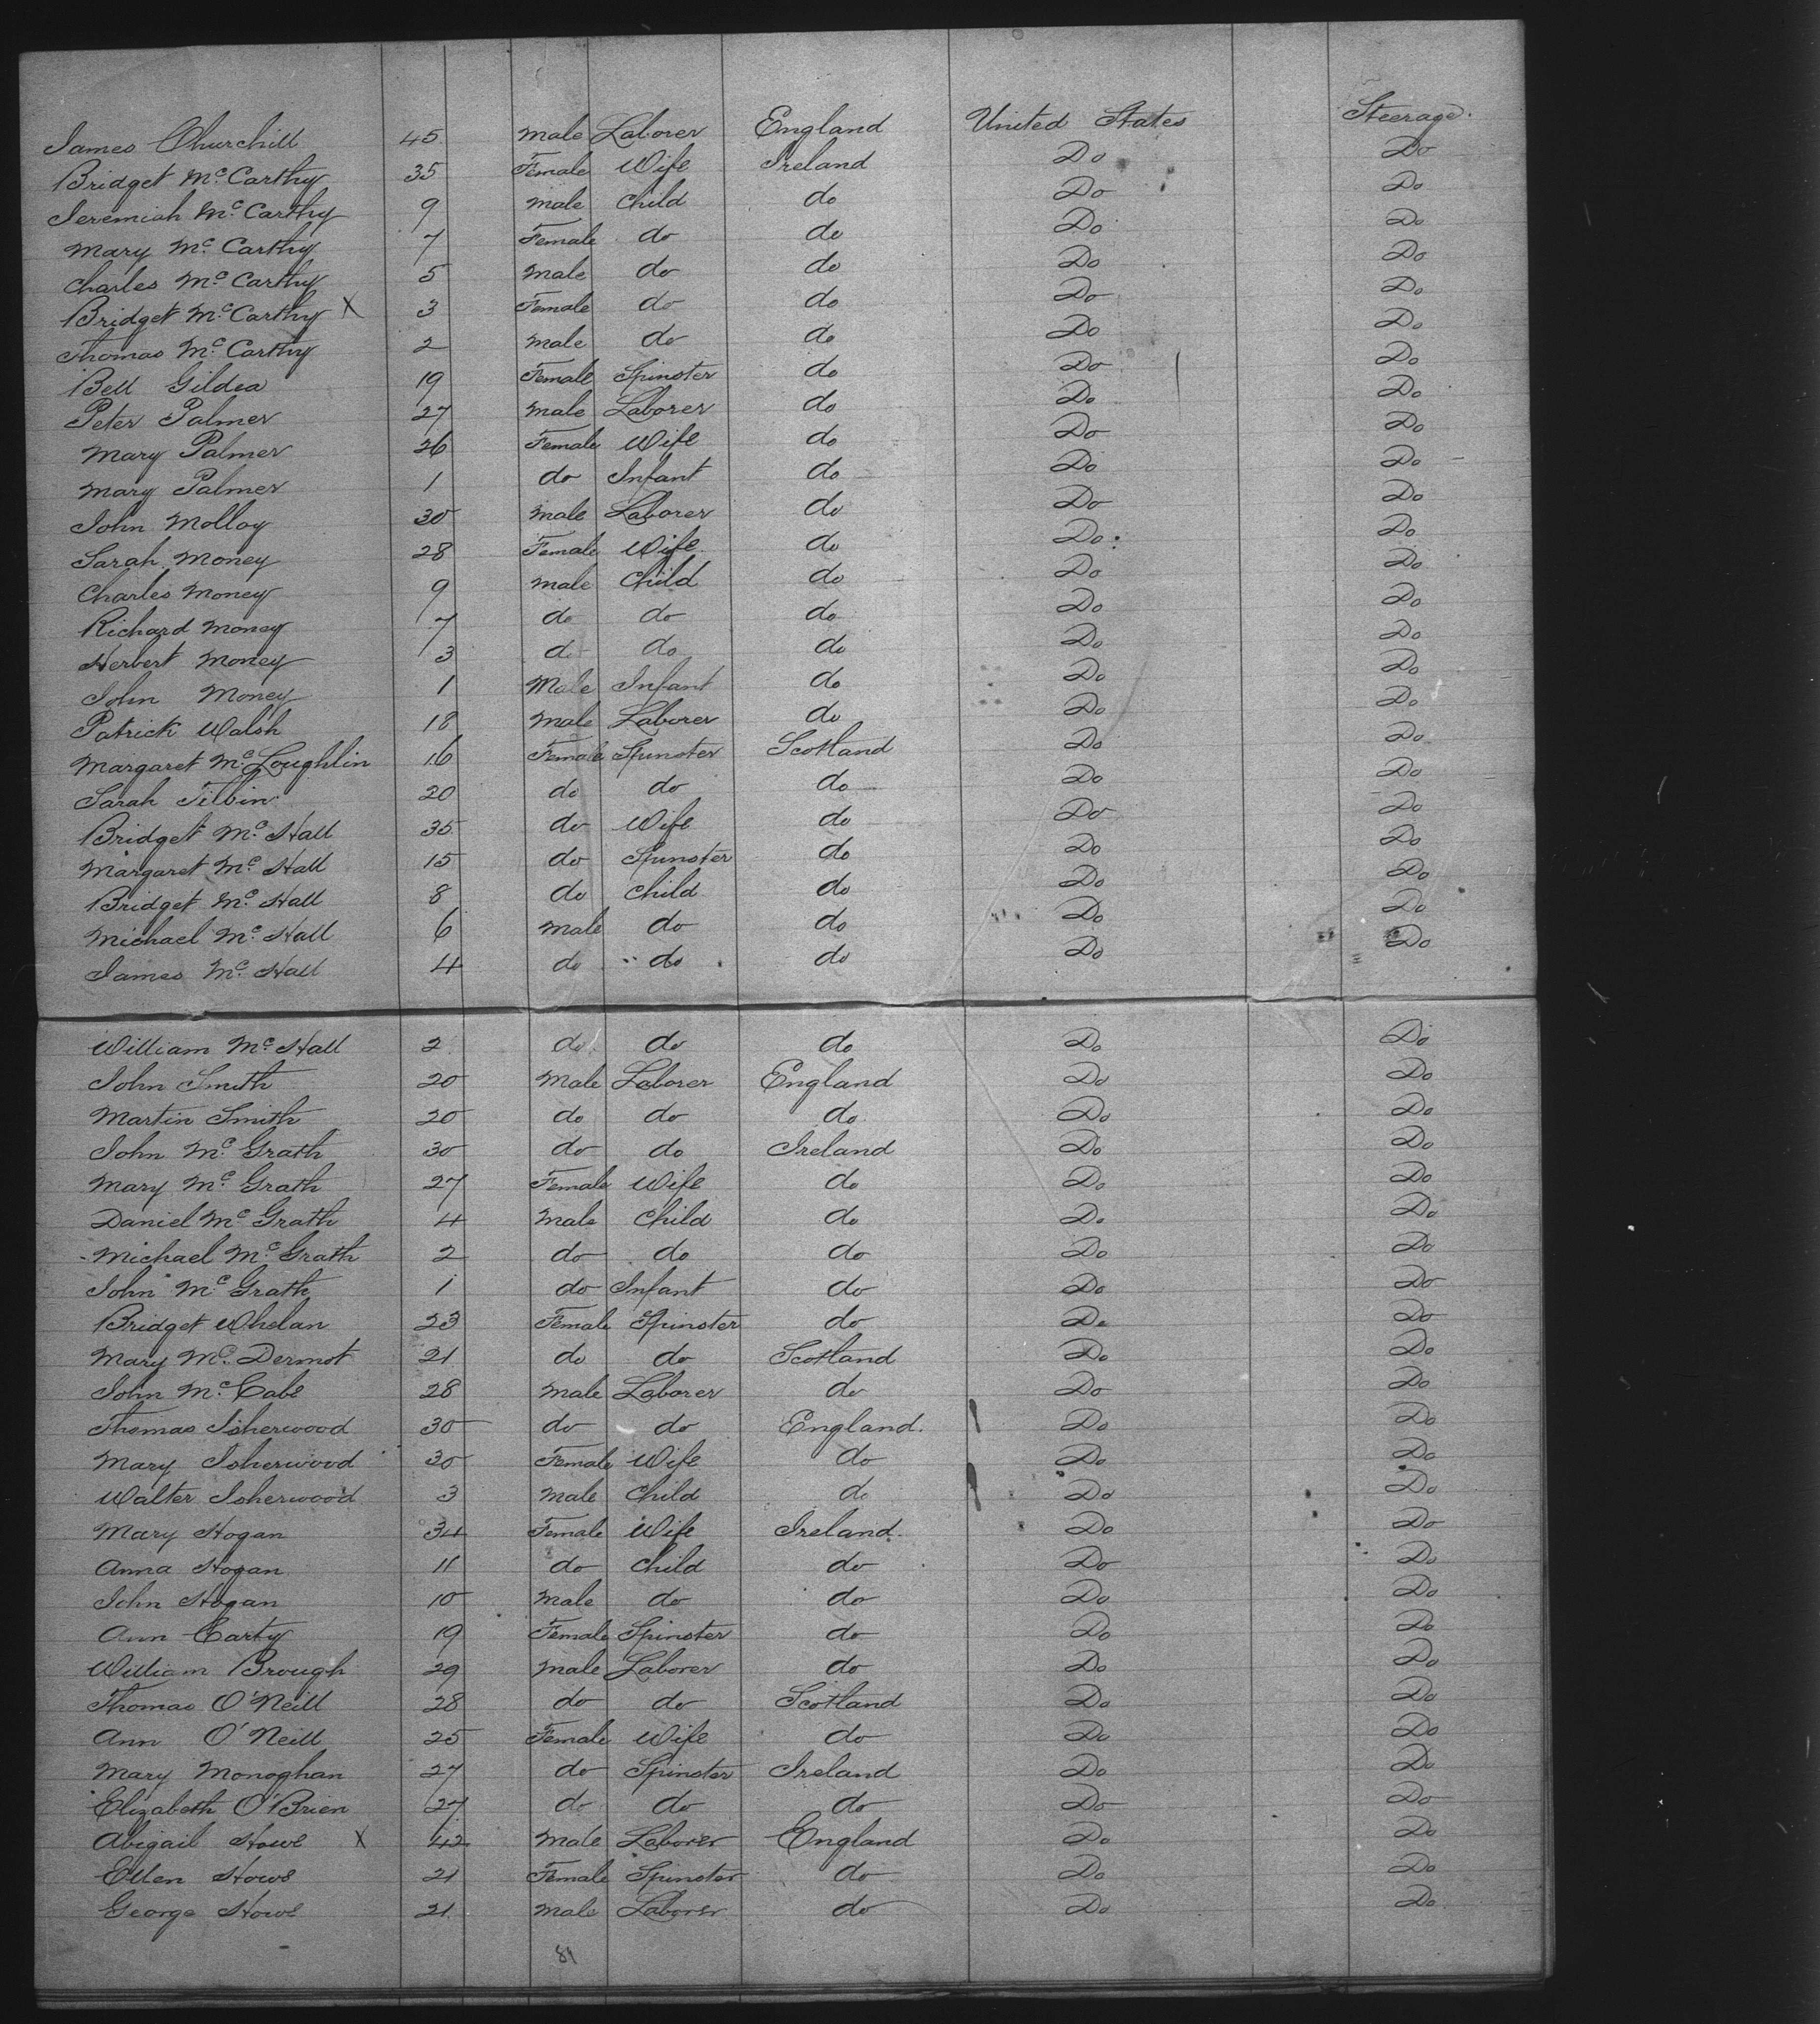 James Churchill 45 Male Laborer England United States Steerage.
Bridget McCarthy 35 Female Wife Ireland Do Do
Jeremiah McCarthy 9 Male Child do Do Do
Mary McCarthy 7 Female do do Do Do
Charles McCarthy 5 Male do do Do Do
Bridget McCarthy X 3 Female do do Do Do
Thomas McCarthy 2 Male do do Do Do
Bell Gildea 19 Female Spinster do Do Do
Peter Palmer 27 Male Laborer do Do Do
Mary Palmer 26 Female Wife do Do Do
Mary Palmer 1 do Infant do Do Do
John Molloy 30 Male Laborer do Do Do
Sarah Money 28 Female Wife do Do Do
Charles Money 9 Male Child do Do Do
Richard Money 7 do do do Do Do
Herbert Money 3 do do do Do Do
John Money 1 Male Infant do Do Do
Patrick Walsh 18 Male Laborer do Do Do
Margaret McLoughlin 16 Female Spinster Scotland Do Do
Sarah 20 do do do Do Do
Bridget Mc Hall 35 do Wife do Do Do
Margaret Mc Hall 15 do Spinster do Do Do
Bridget Mc Hall 8 do Child do Do Do
Michael Mc Hall 6 Male do do Do Do
James Mc Hall 4 do do do Do Do
William Mc Hall 2 do do do Do Do
John Smith 20 Male Laborer England Do Do
Martin Smith 20 do do do Do Do
John McGrath 30 do do Ireland Do Do
Mary McGrath 27 Female Wife do Do Do
Daniel McGrath 4 Male Child do Do Do
Michael McGrath 2 do do do Do Do
John McGrath 1 do Infant do Do Do
Bridget Whelan 23 Female Spinster do Do Do
Mary McDermot 21 do do Scotland Do Do
John McCabe 28 Male Laborer do Do Do
Thomas Isherwood 30 do do England. Do Do
Mary Isherwood 30 Female Wife do Do Do
Walter Isherwood 3 Male Child do Do Do
Mary Hogan 34 Female Wife Ireland. Do Do
Anna Hogan 11 do Child do Do Do
John Hogan 10 Male do do Do Do
Ann Carty 19 Female Spinster do Do Do
William Brough 29 Male Laborer do Do Do
Thomas O'Neill 28 do do Scotland Do Do
Ann O'Neill 25 Female Wife do Do Do
Mary Monoghan 27 do Spinster Ireland Do Do
Elizabeth O'Brien 27 do do do Do Do
Abigail Howe X 42 Male Laborer England Do Do
Ellen Howe 21 Female Spinster do Do Do
George Howe 21 Male Laborer do Do Do
81